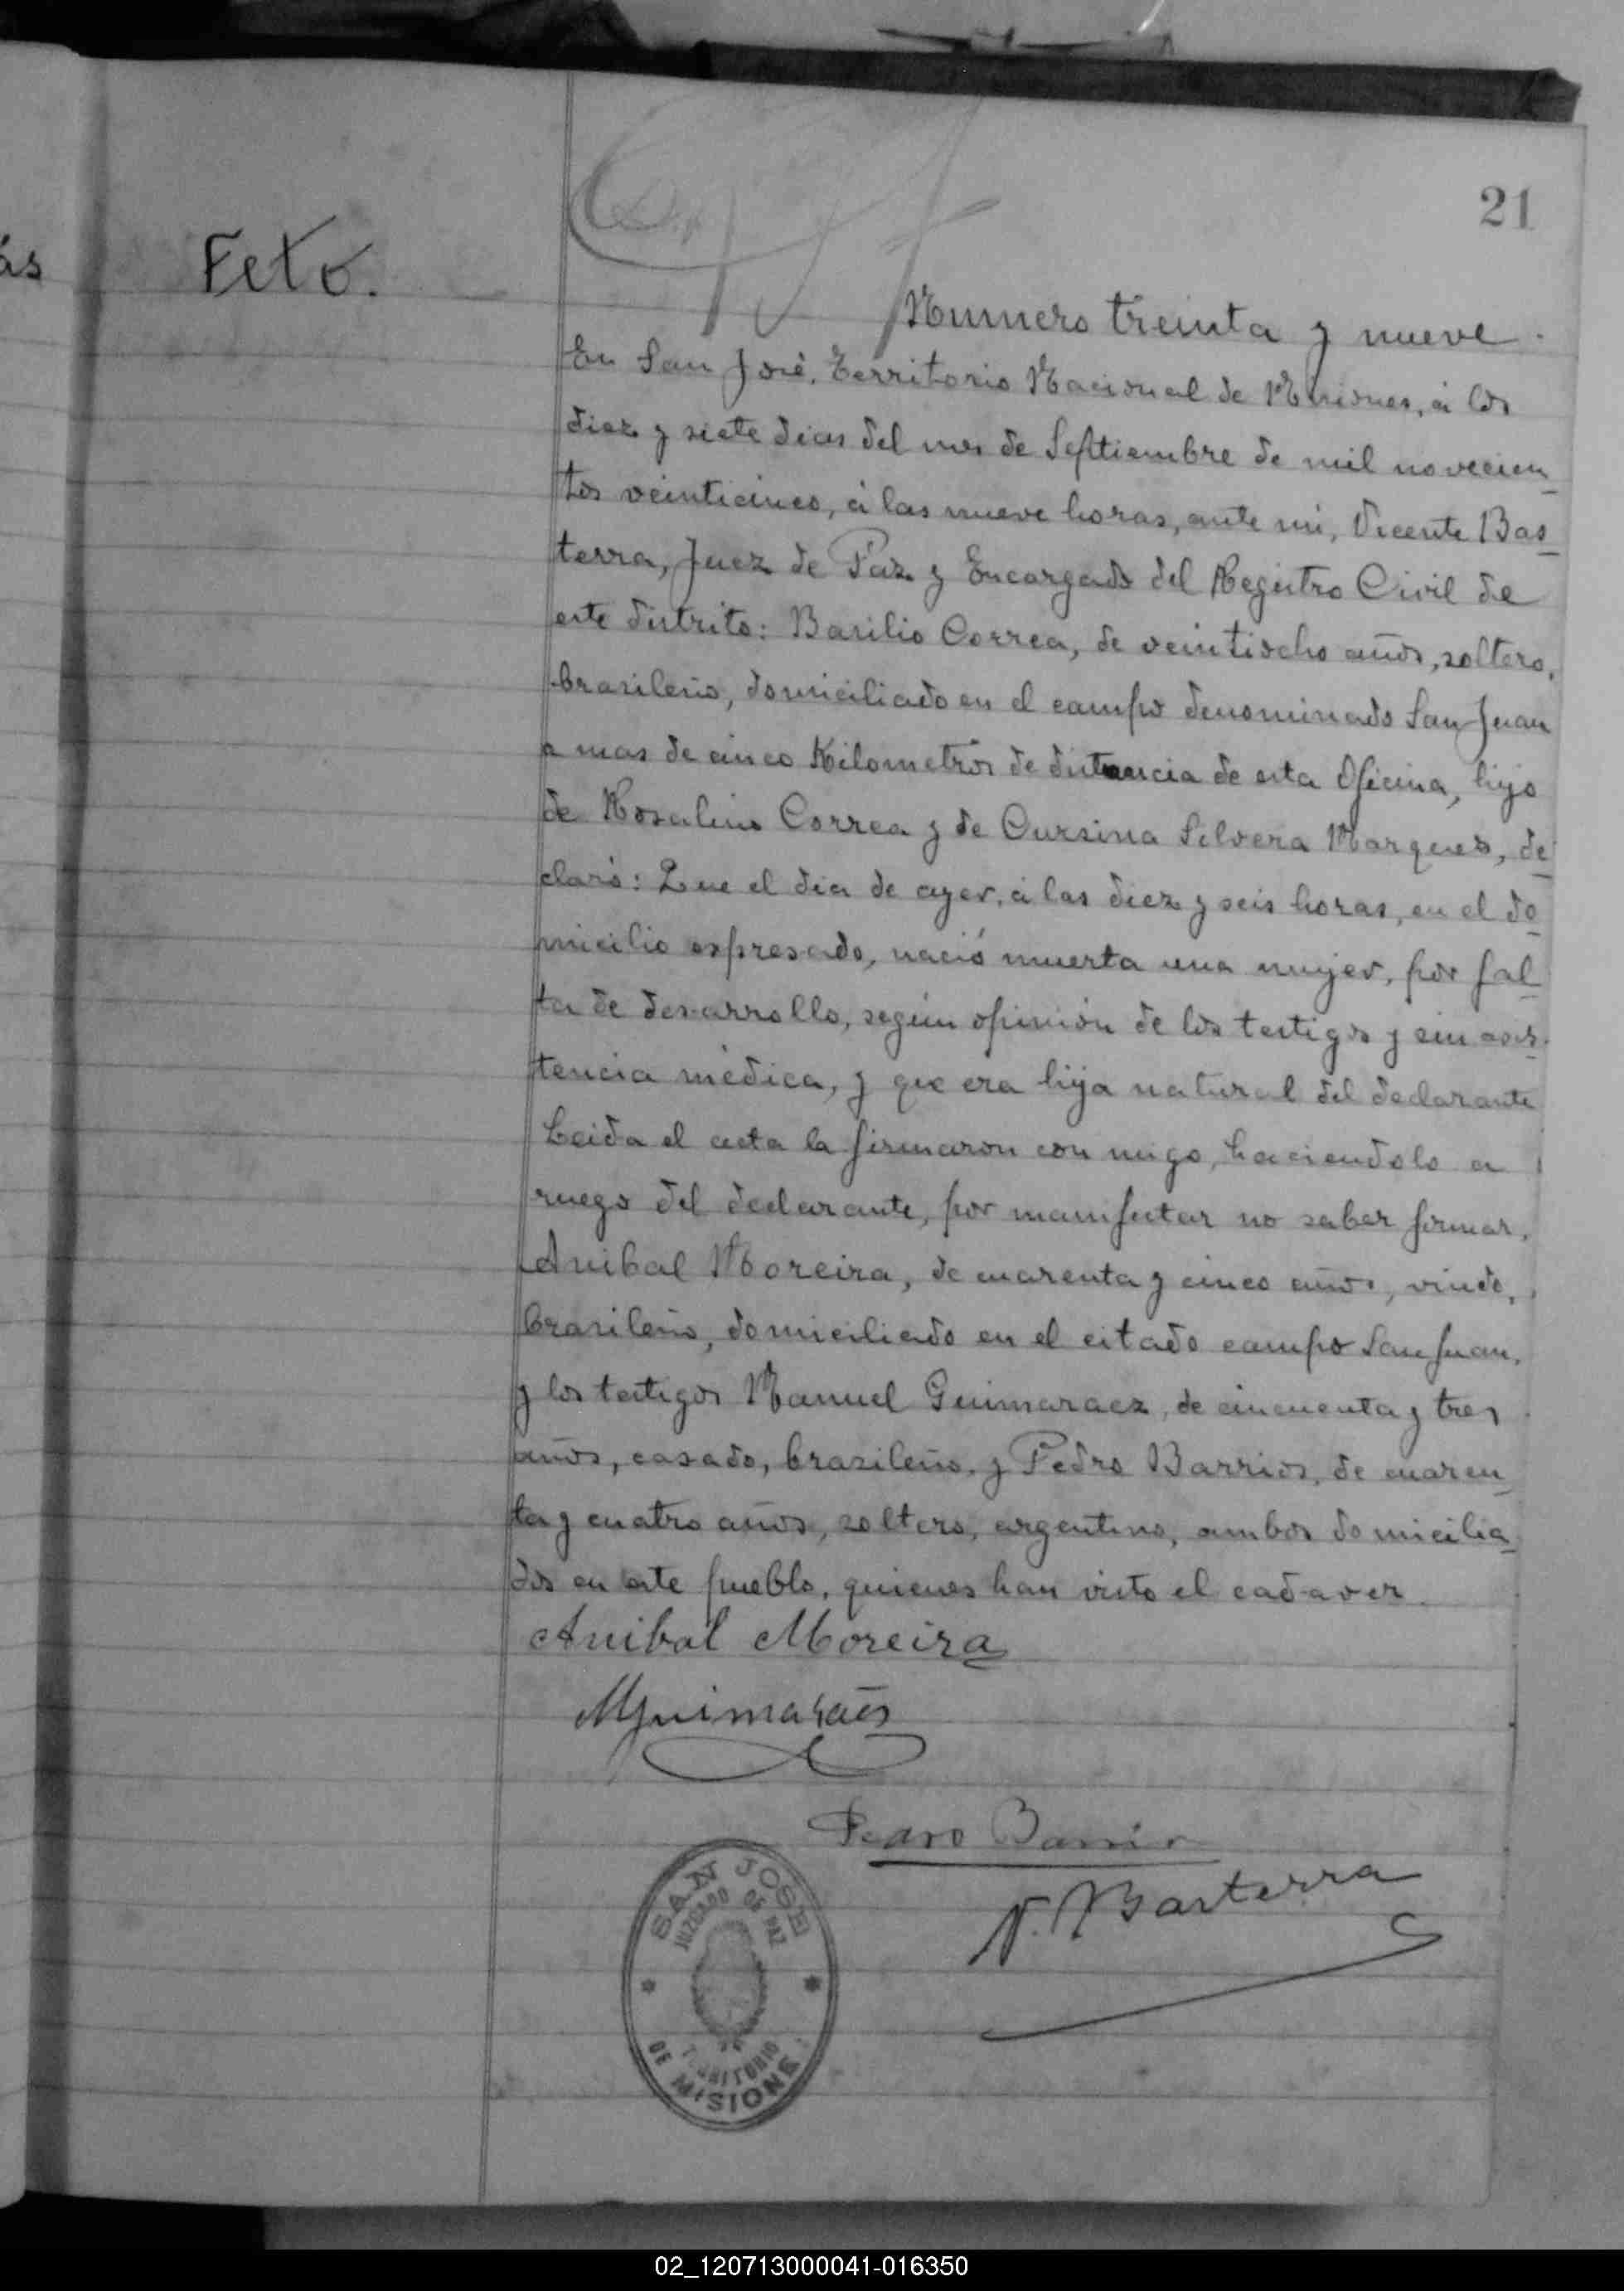 21
ás
Feto.
Numero treinta y nueve.
En San José, Territorio Nacional de Misiones, á los
diez y siete dias del mes de Septiembre de mil novecien_
tos veinticinco, á las nueve horas, ante mi, Vicente Bas_
terra, Juez de Paz y Encargado del Registro Civil de
este distrito: Basilio Correa, de veintiocho años, soltero,
brasileño, domiciliado en el campo denominado San Juan
a mas de cinco Kilometros de distancia de esta Oficina, hijo
de Rosalino Correa y de Cursina Silvera Marques, de_
claró: Que el dia de ayer, á las diez y seis horas, en el do_
micilio espresado, nació muerta una mujer, por fal_
ta de desarrollo, según opinión de los testigos y sin asis_
tencia médica, y que era hija natural del declarante
Leida el acta la firmaron con migo, haciendolo a
ruego del declarante, por manifestar no saber firmar,
Anibal Moreira, de cuarenta y cinco años, viudo,
brasileño, domiciliado en el citado campo San Juan,
y los testigos Manuel Guimaraez, de cincuenta y tres
años, casado, brasileño, y Pedro Barrios, de cuaren_
ta y cuatro años, soltero, argentino, ambos domicilia_
dos en este pueblo, quienes han visto el cadaver.
Anibal Moreira
MGuimarães
Pedro Barrios
V. Basterra
SAN JOSE
JUZGADO DE PAZ
TERRITORIO
DE MISIONES
02_120713000041-016350